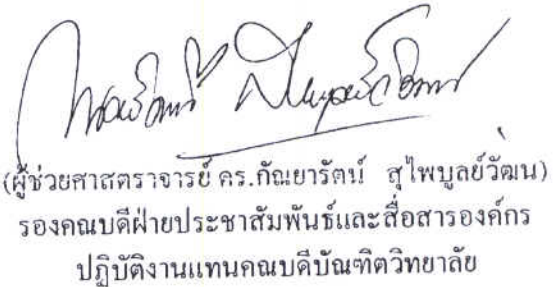 (ผู้ช่วยศาสตราจารย์ ดร.กัณยารัตน์ สุไพบูลย์วัฒน)
รองคณบดีฝ่ายประชาสัมพันธ์และสื่อสารองค์กร
ปฏิบัติงานแทนคณบดีบัณฑิตวิทยาลัย